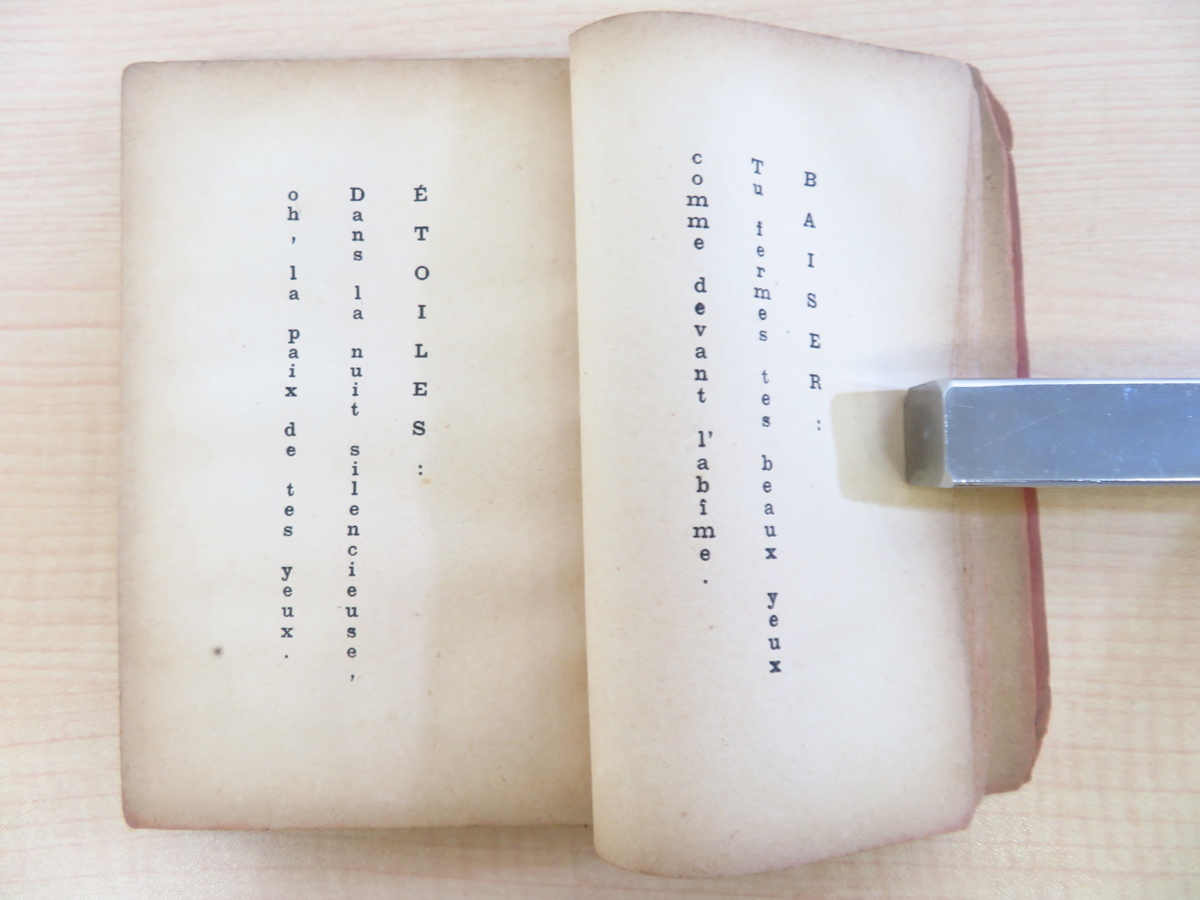 BAISER:
Tu fermes tes beaux yeux
comme devant l'abîme.
ÉTOILES:
Dans la nuit silencieuse,
oh, la paix de tes yeux.